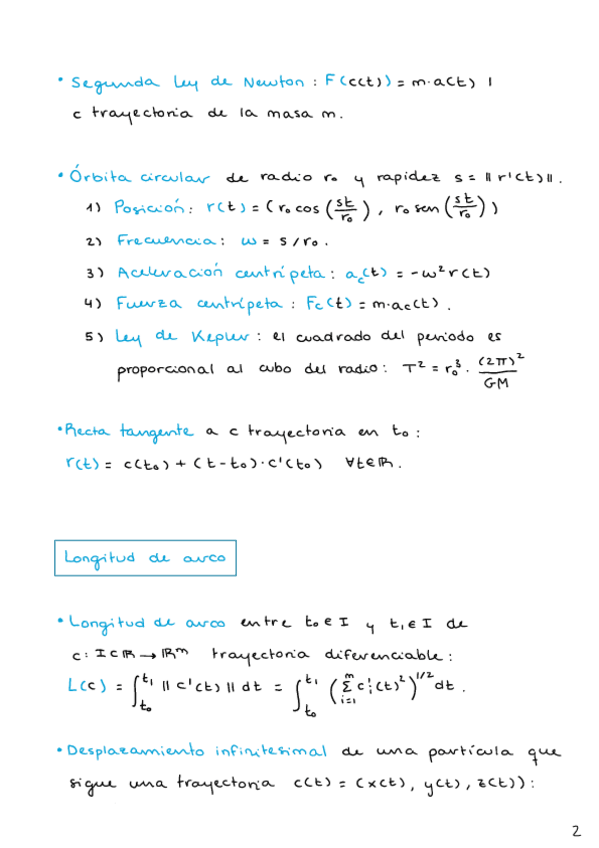 • Segunda Ley de Newton : F(c(t)) = m·a(t) |
c trayectoria de la masa m.
• Órbita circular de radio r₀ y rapidez s = || r'(t) ||.
1) Posición: r(t) = ( r₀ cos (st/r₀) , r₀ sen (st/r₀) )
2) Frecuencia: ω = s/r₀ .
3) Aceleración centrípeta : a_c(t) = -ω² r(t)
4) Fuerza centrípeta : F_c(t) = m·a_c(t) .
5) Ley de Kepler : el cuadrado del periodo es
proporcional al cubo del radio : T² = r₀³ · (2π)²/GM
• Recta tangente a c trayectoria en t₀ :
r(t) = c(t₀) + (t-t₀)·c'(t₀) ∀t∈ℝ.
Longitud de arco
• Longitud de arco entre t₀∈I y t₁∈I de
c: I⊂ℝ → ℝᵐ trayectoria diferenciable :
L(c) = ∫_{t₀}^{t₁} || c'(t) || dt = ∫_{t₀}^{t₁} ( Σ_{i=1}^{m} c'ᵢ(t)² )^{1/2} dt .
• Desplazamiento infinitesimal de una partícula que
sigue una trayectoria c(t) = (x(t), y(t), z(t)) :
2